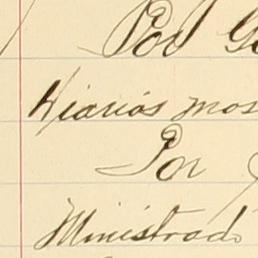 Por G
diarios mos
Por
Ministrad